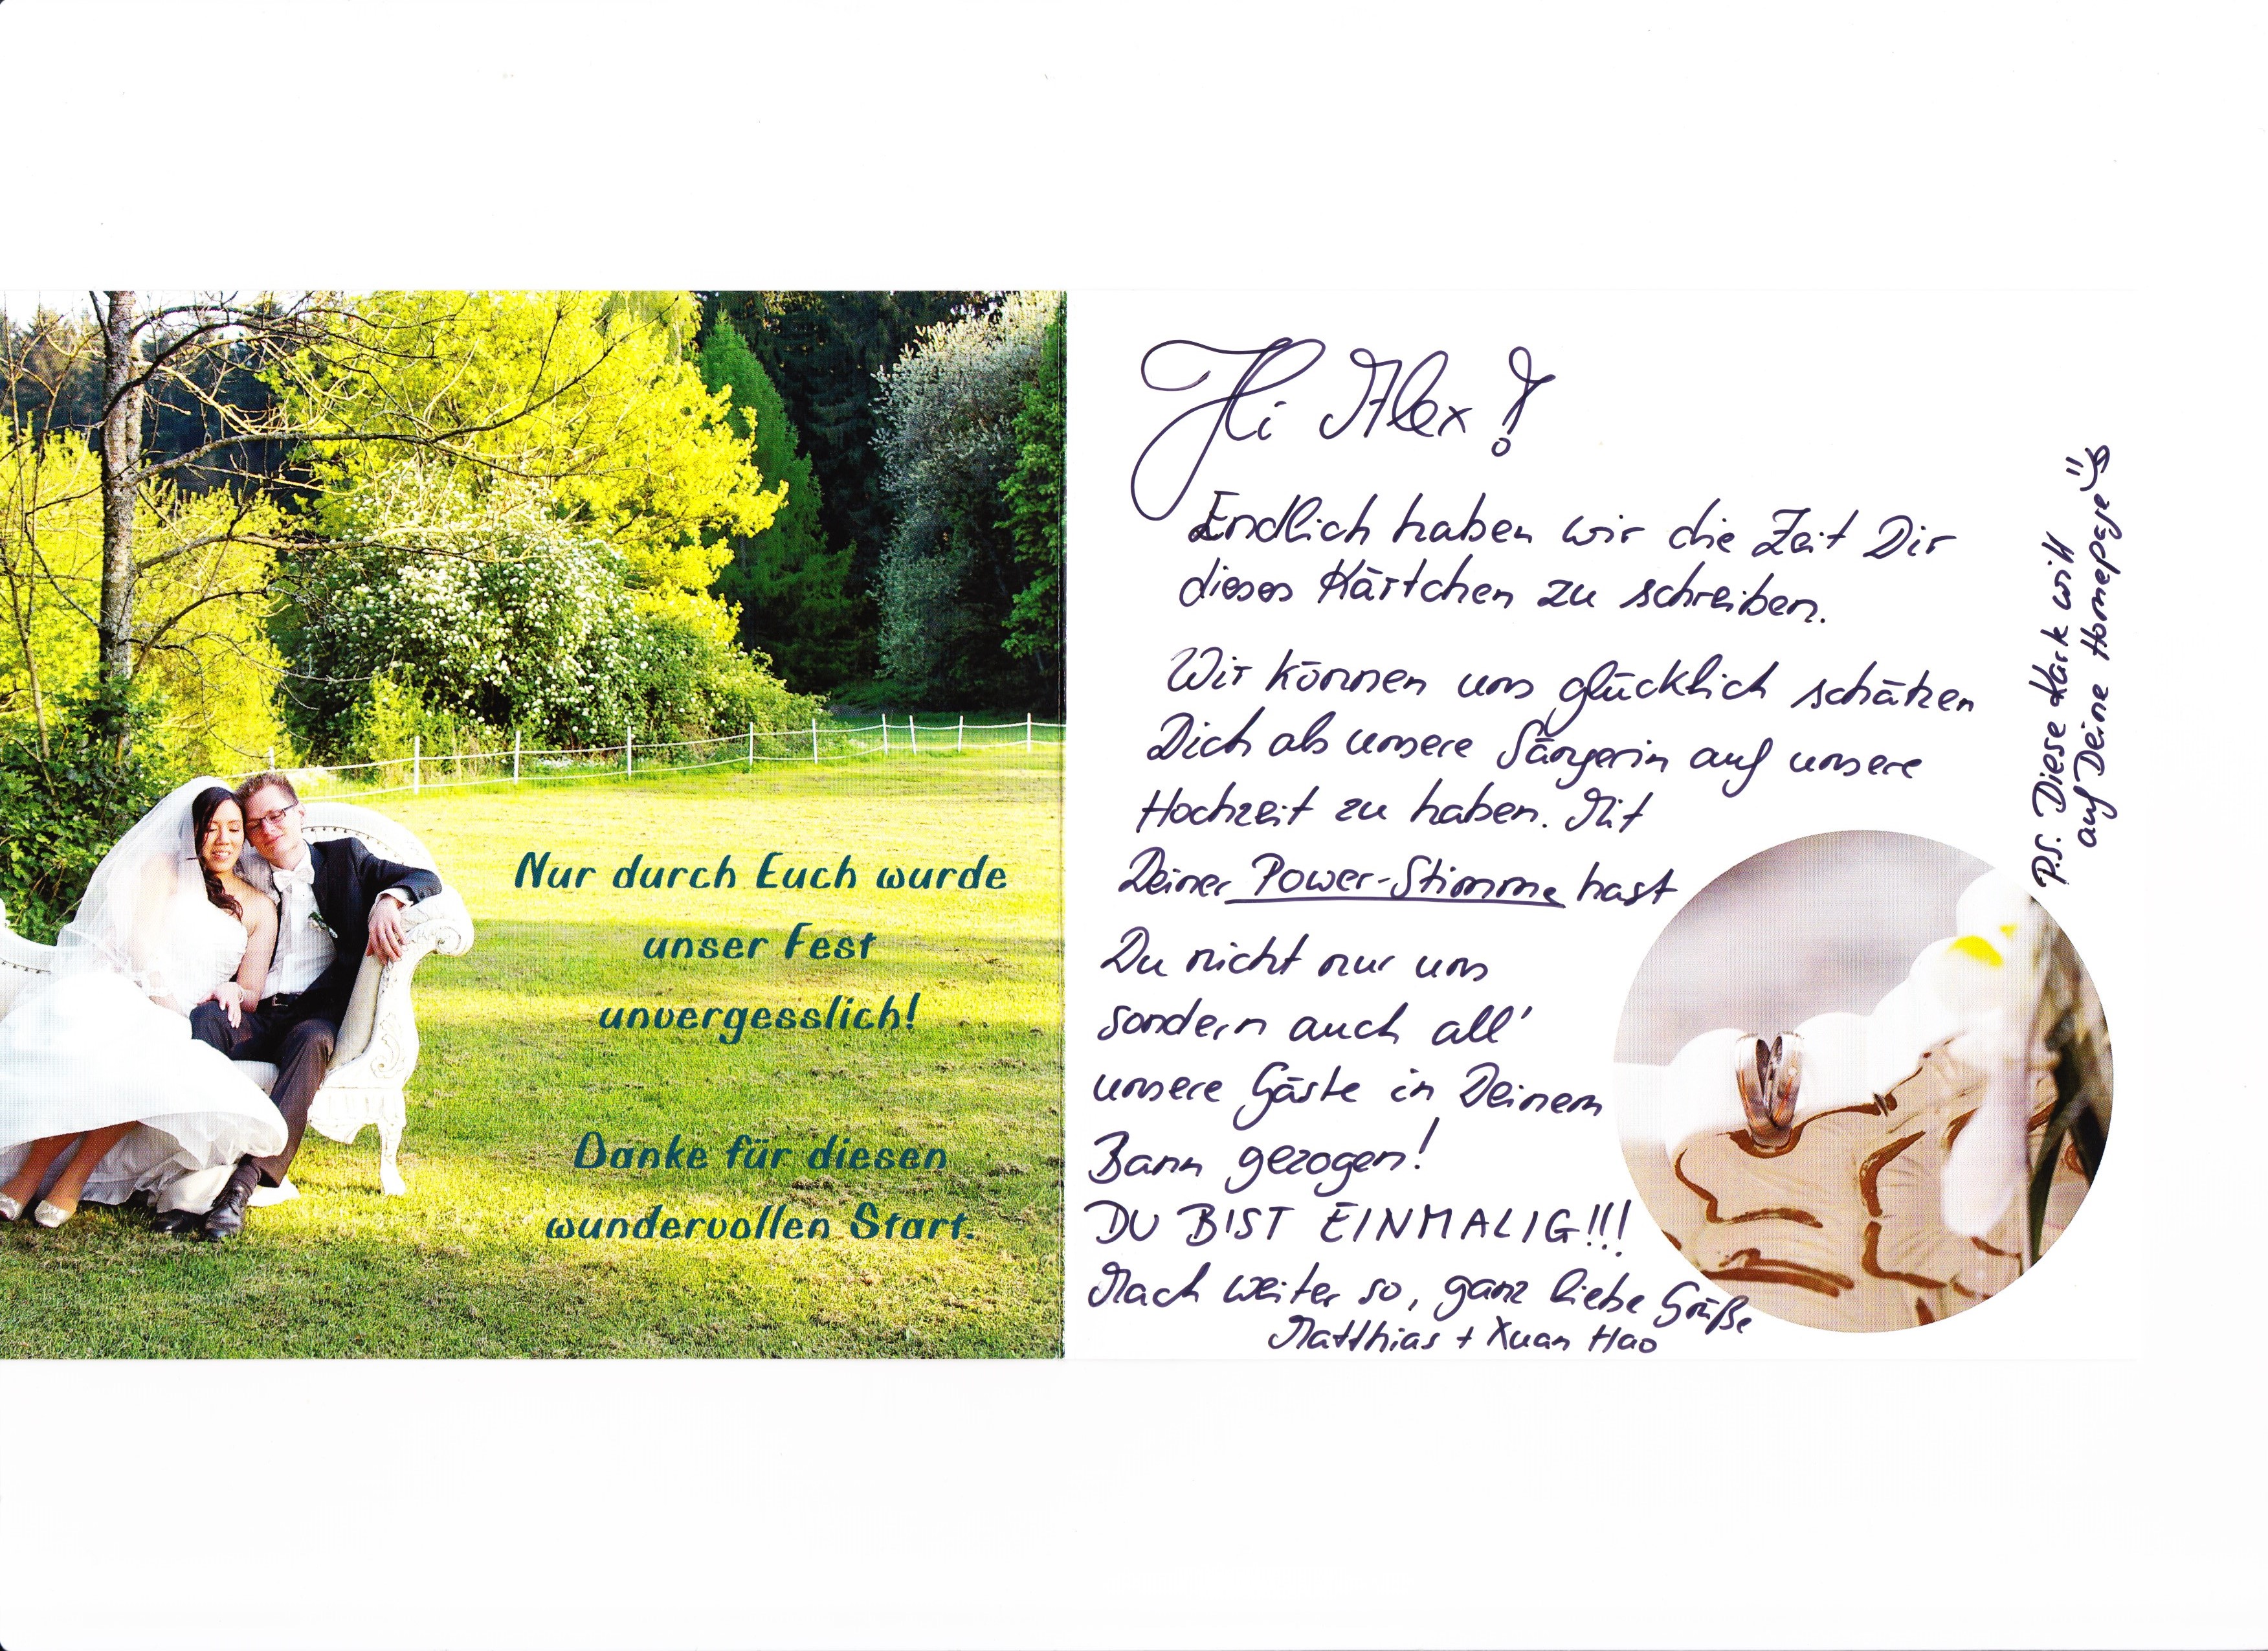 Nur durch Euch wurde
unser Fest
unvergesslich!
Danke für diesen
wundervollen Start.
Hi Alex!
Endlich haben wir die Zeit Dir
dieses Kärtchen zu schreiben.
Wir können uns glücklich schätzen
Dich als unsere Sängerin auf unsere
Hochzeit zu haben. Mit
Deiner Power-Stimme hast
Du nicht nur uns
sondern auch all'
unsere Gäste in Deinem
Bann gezogen!
DU BIST EINMALIG!!!
Mach weiter so, ganz liebe Grüße
Matthias + Xuan Hao
P.S. Diese Kark will
auf Deine Homepage